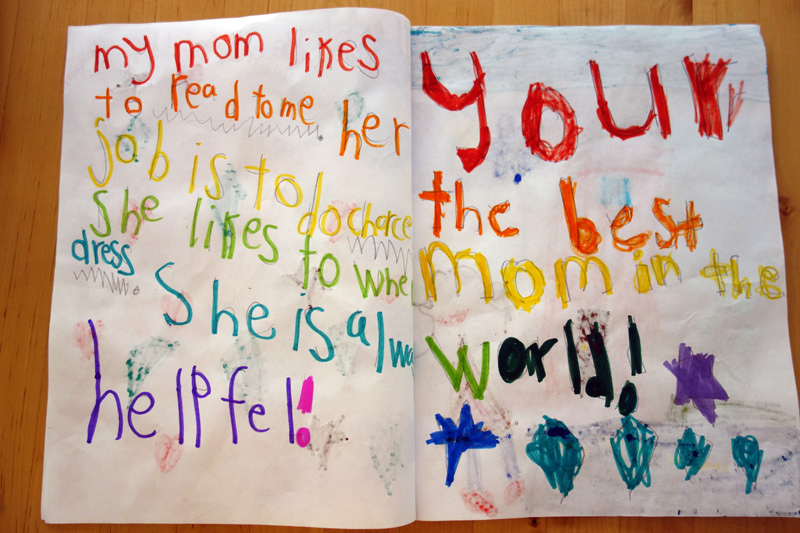 my mom likes
to read to me her
job is to do chorce
She likes to whe
dress
She is alwa
helpfel!
your
the best
mom in the
world!